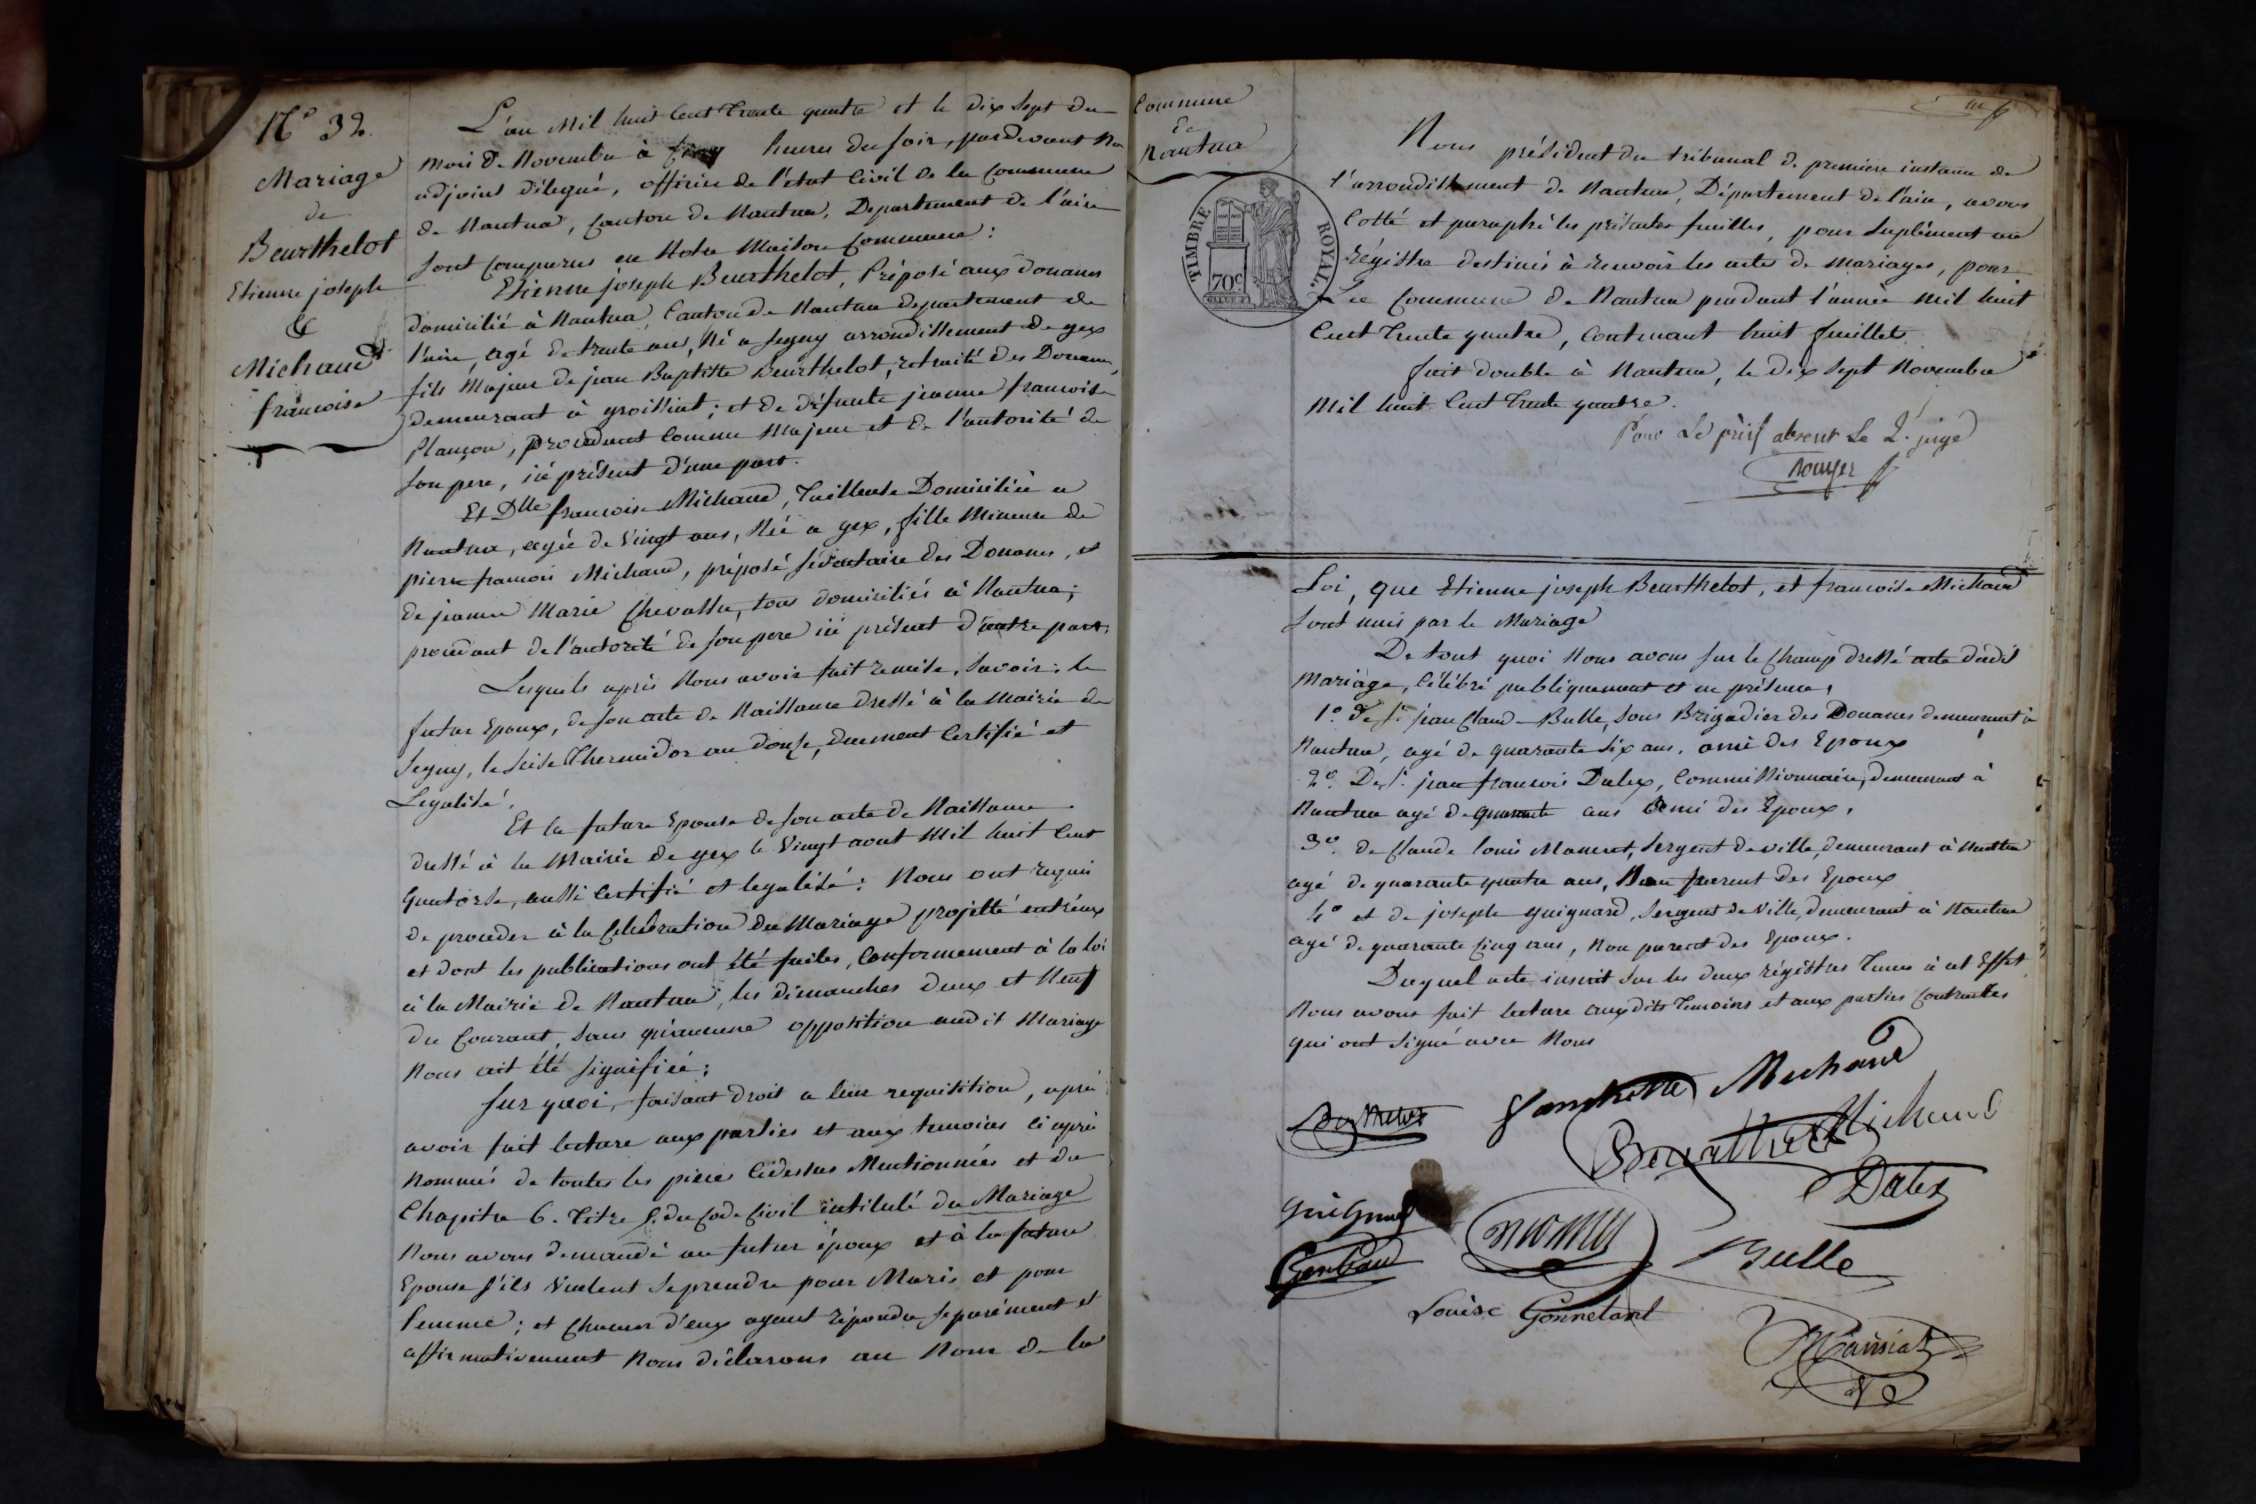 N.º 32.
Mariage
de
Beurthelot
Etienne joseph
&
Michaud
francoise
L'an Mil huit Cent Trente quatre et le dix Sept du
mois de Novembre à heures du soir, pardevant Nous
adjoint délégué, officier de l'état Civil de la Commune
de Nantua, Canton de Nantua, Departement de l'ain
sont Comparus en Notre Maison Commune :
Etienne joseph Beurthelot, Préposé aux douanes
domicilié à Nantua, Canton de Nantua departement de
l'ain, agé de trente ans, Né a Segny arrondissement de gex
fils Majeur de jean Baptiste Beurthelot, retraité des Douanes,
demeurant à groissiat ; et de défunte jeanne francoise
Plançon, procedant Comme Majeur et de l'autorité de
son pere, ici présent d'une part.
Et Dlle francoise Michaud, Tailleuse Domiciliée a
Nantua, agée de Vingt ans, Née a gex, fille Mineure de
pierre francois Michaud, préposé sédentaire des Douanes, et
de jeanne Marie Chevassu, tous domiciliés à Nantua ;
procedant de l'autorité de son pere ici présent d'autre part.
Lesquels après Nous avoir fait remise, Savoir : le
futur Epoux, de son acte de Naissance dressé à la Mairie de
Segny, le seise Thermidor an douse, duement Certifié et
Legalisé.
Et la future Epouse de son acte de Naissance
dressé à la Mairie de gex le Vingt aout Mil huit Cent
quatorse, aussi Certifié et legalisé : Nous ont requis
de proceder à la Celebration du Mariage projetté entr'eux
et dont les publications ont été faites, Conformement à la loi
à la Mairie de Nantua, les dimanches deux et Neuf
du Courant, sans qu'aucune opposition audit Mariage
Nous ait été signifiée ;
Sur quoi, faisant droit a leur requisition, après
avoir fait lecture aux parties et aux temoins ci après
Nommés de toutes les pièces Cidessus Mentionnées et du
Chapitre 6. Titre 5. du Code Civil intitulé du Mariage
Nous avons demandé au futur époux et à la future
Epouse s'ils Veulent se prendre pour Maris et pour
femme ; et Chacun d'eux ayant répondu séparément et
affirmativement Nous déclarons au Nom de la
Commune
de
Nantua
TIMBRE ROYAL.
70c
Nous président du tribunal de premiere instance de
l'arrondissement de Nantua, Département de l'ain, avons
Cotté et paraphé les présentes feuilles, pour suplément au
Régistre destinés à recevoir les actes de mariages, pour
La Commune de Nantua pendant l'année mil huit
Cent trente quatre, Contenant huit feuillets.
fait double à Nantua, le dix Sept Novembre
Mil huit Cent trente quatre.
Pour Le présid absent Le 2.e juge
Rouyer
Loi, que Etienne joseph Beurthelot, et francoise Michaud
sont unis par le Mariage
De tout quoi Nous avons sur le Champ dressé acte dudit
Mariage, Célébré publiquement et en présence,
1.º De Sr. jean Claude Bulle, sous Brigadier des Douanes demeurant à
Nantua, agé de quarante six ans, ami des Epoux
2.º De Sr. jean francois Dalex, Commissionnaire, demeurant à
Nantua agé de quarante ans ami des Epoux,
3.º de Claude louis Maneret, sergent de ville, demeurant à Nantua
agé de quarante quatre ans, Non parent des Epoux
4.º et de joseph guignard, sergent de Ville, demeurant à Nantua
agé de quarante Cinq ans, Non parent des Epoux.
Duquel acte inscrit sur les deux régistres Tenus à cet Effet
Nous avons fait lecture auxdits Temoins et aux parties Contractantes
qui ont signé avec Nous
Berthelot
Michaud
Beurthelot Michaud
Dalex
Bulle
Louise Gonnetant